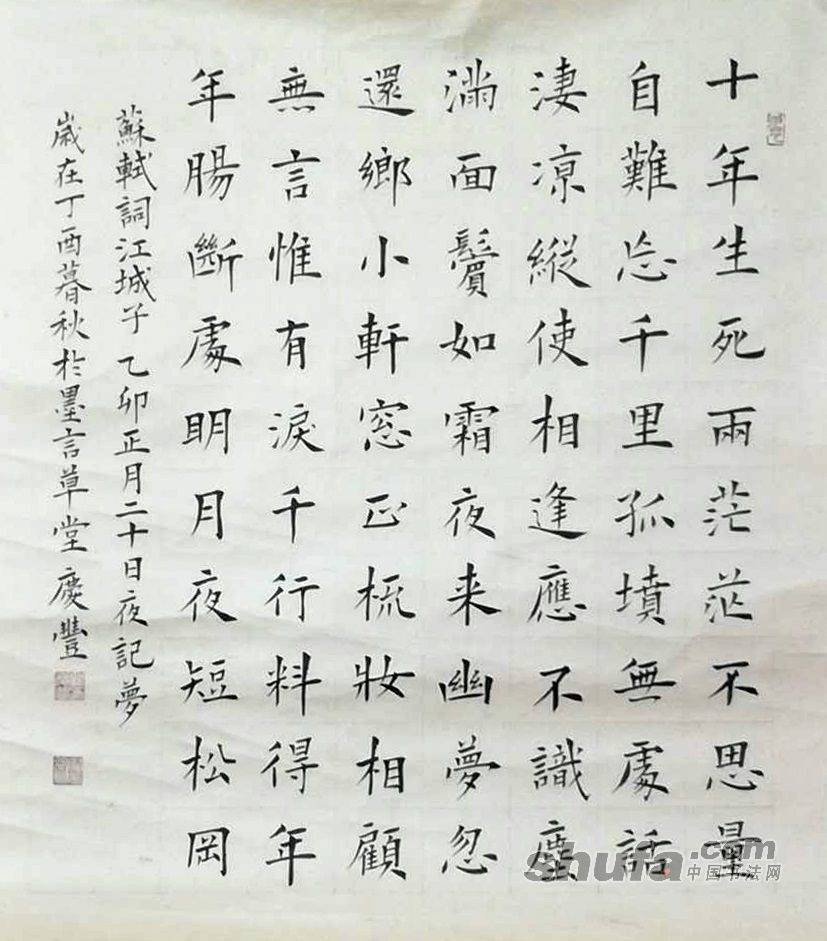 十年生死兩茫茫不思量
自難忘千里孤墳無處話
淒凉縱使相逢應不識塵
滿面鬢如霜夜来幽夢忽
還鄉小軒窓正梳妝相顧
無言惟有淚千行料得年
年腸斷處明月夜短松岡
蘇軾詞江城子乙卯正月二十日夜記夢
歲在丁酉暮秋於墨言草堂慶豐
shufa.com
中国书法网